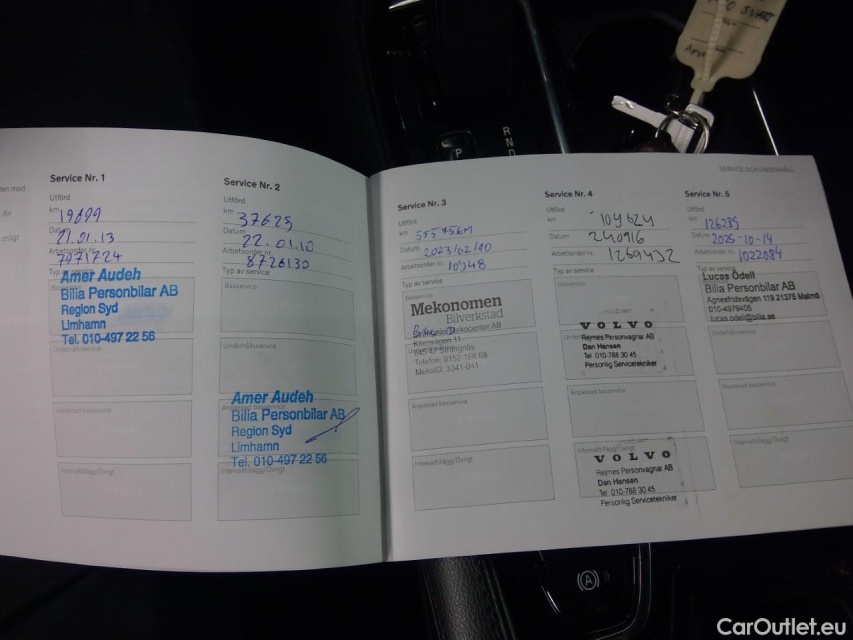 O SVART
R
N
D
P
SERVICE OCH UNDERHÅLL
Service Nr. 1
Utförd
km 19699
Datum 21.01.13
Arbetsorder nr. 7971724
Typ av service
Amer Audeh
Bilia Personbilar AB
Region Syd
Limhamn
Tel. 010-497 22 56
Anpassad basservice
Intervalltillägg/Övrigt
Service Nr. 2
Utförd
km 37625
Datum 22.01.10
Arbetsorder nr. 8726130
Typ av service
Basservice
Underhållsservice
Amer Audeh
Bilia Personbilar AB
Region Syd
Limhamn
Tel. 010-497 22 56
Intervalltillägg/Övrigt
Service Nr. 3
Utförd
km
Datum 2023/02/10
Arbetsorder nr. 10948
Typ av service
Basservice
Mekonomen
Bilverkstad
645 47 Strängnäs
Telefon: 0152-168 68
MekoID: 3341-041
Anpassad basservice
Intervalltillägg/Övrigt
Service Nr. 4
Utförd
km 109624
Datum 240916
Arbetsorder nr. 1269432
Typ av service
Basservice
VOLVO
Rejmes Personvagnar AB
Dan Hansen
Tel 010-788 30 45
Personlig Servicetekniker
Anpassad basservice
Intervalltillägg/Övrigt
VOLVO
Rejmes Personvagnar AB
Dan Hansen
Tel 010-788 30 45
Personlig Servicetekniker
Service Nr. 5
Utförd
km 126235
Datum 2025-10-14
Arbetsorder nr. 1022084
Typ av service
Lucas Ödell
Bilia Personbilar AB
Agnesfridsvägen 119 21375 Malmö
010-4979405
lucas.odell@bilia.se
Underhållsservice
Anpassad basservice
Intervalltillägg/Övrigt
A
CarOutlet.eu